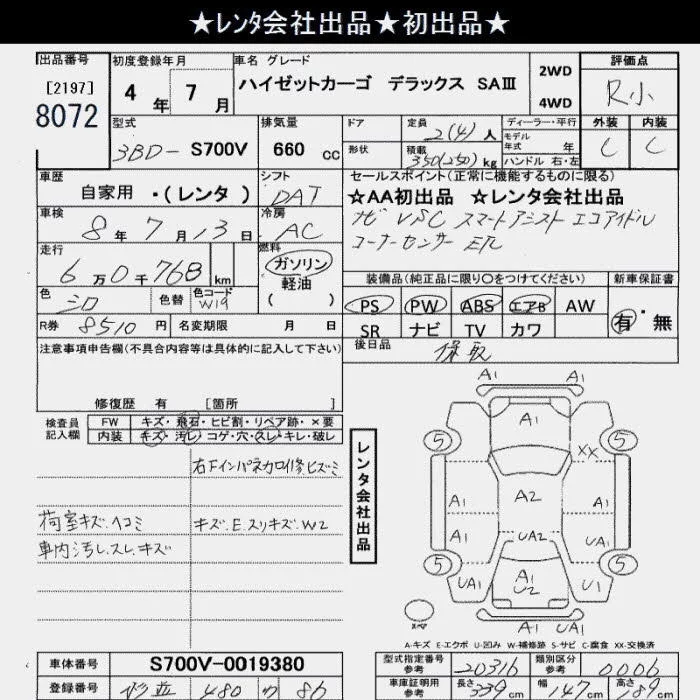 ★レンタ会社出品★初出品★
出品番号 初度登録年月 車名 グレード 評価点
[2197] 8072
4年 7月 ハイゼットカーゴ デラックス SAⅢ 2WD 4WD R小
型式 排気量 ドア 定員 ディーラー・平行 外装 内装
3BD-S700V 660 cc 2(4)人 モデル年式 年 C C
形状 積載 350(250)kg ハンドル 右・左
車歴 シフト セールスポイント(正常に機能するものに限る)
自家用・(レンタ) DAT ☆AA初出品 ☆レンタ会社出品
車検 冷房 ナビ VSC スマートアシスト エコアイドル
8年7月13日 AC コーナーセンサー ETC
走行 燃料
6万0千768km ガソリン 軽油 ( ) 装備品(純正品に限り○をつけてください) 新車保証書
色 シロ 色替 色コード W19 PS PW ABS エアB AW 有・無
R券 8510円 名変期限 月 日 SR ナビ TV カワ
注意事項申告欄(不具合内容等は具体的に記入して下さい) 後日品 保取
修復歴 有 [箇所 ]
検査員記入欄 FW キズ・飛石・ヒビ割・リペア跡・×要
内装 キズ・汚レ・コゲ・穴・スレ・キレ・破レ
右Fインパネカロ修.ヒズミ
荷室キズ.ヘコミ キズ.E.スリキズ.W2
車内汚し.スレ.キズ
レンタ会社出品
A1 A1
A1
5 5
XX
A1 A2 A1
A1 UA2 A1
5 5
UA1 A1 U2 U1
UA1 UA1
スペア
A-キズ E-エクボ U-凹み W-補修跡 S-サビ C-腐食 XX-交換済
車体番号 S700V-0019380 型式指定番号 参考 20316 類別区分 参考 0006
登録番号 480 86 車庫証明用 参考 長さ 339cm 幅 147cm 高さ 189cm